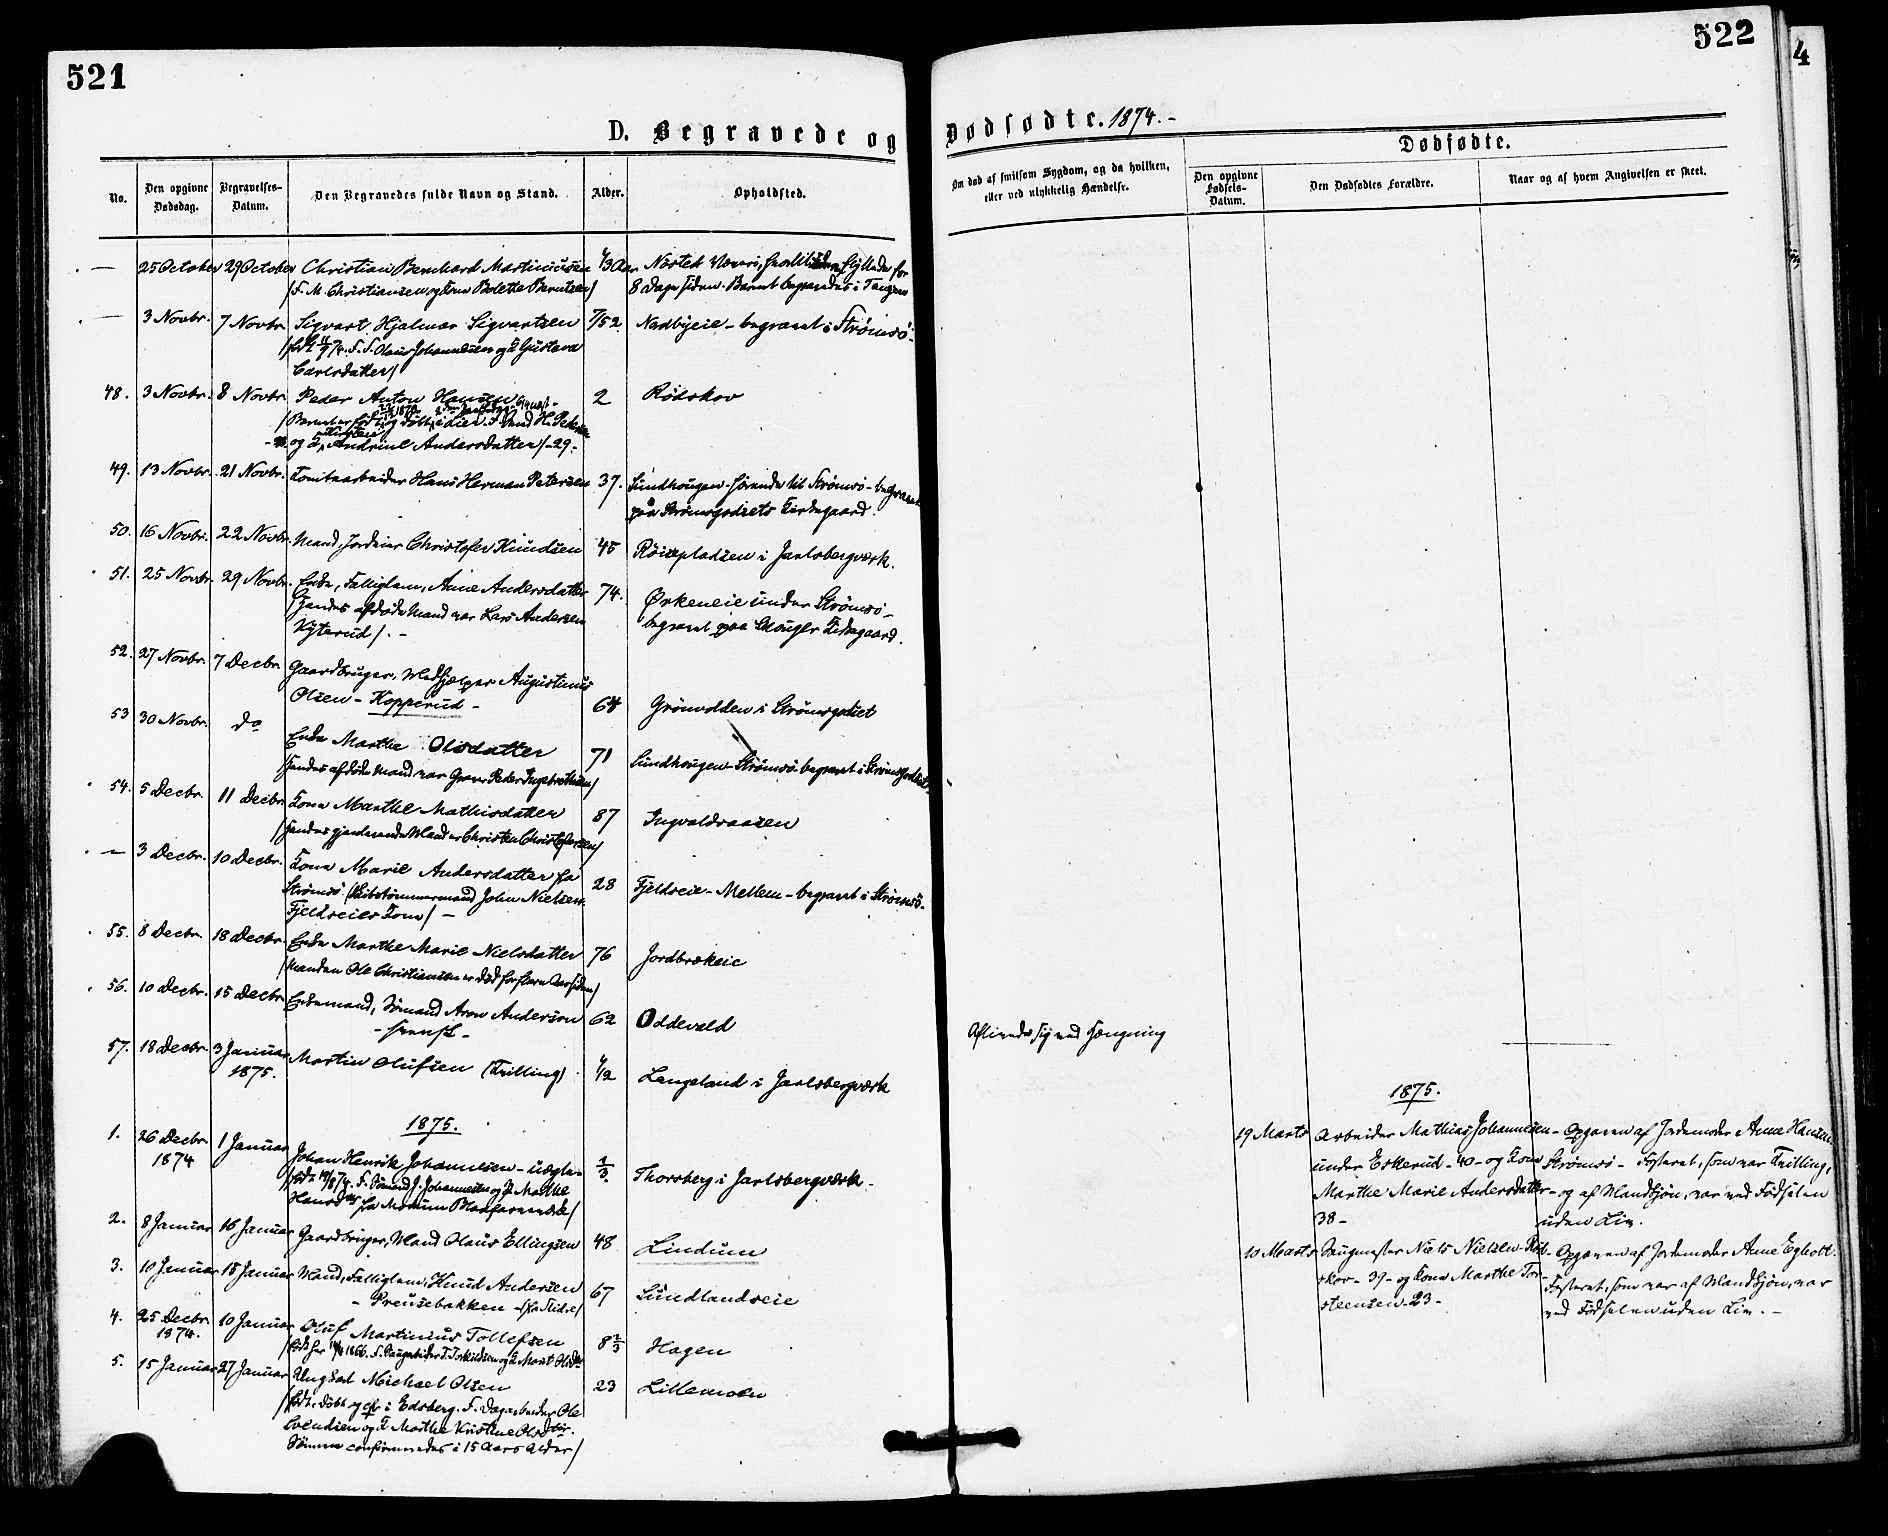 521
D. Begravede og
No.
Den opgivne Dødsdag.
Begravelses-Datum.
Den Begravedes fulde Navn og Stand.
Alder.
Opholdsted.
— 25 October 29 October Christian Bernhard Martiniusen 1/3 Aar
/F. M. Christiansen og Kone Bolette Berntsen/
8 Dage siden. Barnet begravedes i Tangen
— 3 Novbr. 7 Novbr. Sigvart Hjalmar Sigvartsen 7/52 Nordbyeie - begravet i Strømsø.
Olaus Johannesen og Gustava
Carlsdatter/
48. 3 Novbr. 8 Novbr. Peder Anton Hansen 2 Rødskov
og Andrine Andersdatter/-29-
49. 13 Novbr. 21 Novbr. Tomtearbeider Hans Herman Petersen 37. Sundhougen - hørende til Strømsø - begravet
paa Strømsgodsets Kirkegaard.
50. 16 Novbr. 22 Novbr. Mand, Jordeier Christofer Knudsen 45 Röisepladsen i Jarlsbergværk.
51. 25 Novbr. 29 Novbr. Enke, Fattiglem, Anne Andersdatter 74. Ørkeneie under Strømsø -
/hendes afdøde Mand var Lars Andersen begravet paa Skouger Kirkegaard.
Kyterud/. -
52. 27 Novbr. 7 Decbr. Gaardbruger, Medhjælper Augustinus
Olsen - Kopperud - 64 Grönvolden i Strömsgodset
53 30 Novbr. do Enke Marthe Olsdatter 71 Sundhougen - Strømsø - begravet i Strømsgodset.
/hendes afdøde Mand var Graver Peder Ingebrethsen/
54. 5 Decbr. 11 Decbr. Kone Marthe Mathisdatter 87 Ingvaldsaasen
/hendes gjenlevende Mand er Christen Christofersen/
— 3 Decbr. 10 Decbr. Kone Marie Andersdatter fra 28 Fjeldseie - Mellem - begravet i Strømsø -
Strømsø (Skibstømmermand John Nielsen
Fjeldseies Kone/ -
55. 8 Decbr. 18 Decbr. Enke Marthe Marie Nielsdatter 76 Jordbrækeie
/Manden Ole Christiansen er død for flere Aar siden/
56. 10 Decbr. 15 Decbr. Enkemand, Sømand Aron Anderson 62 Oddevald
- svensk -
57. 18 Decbr. 3 Januar 1875. Martin Olufsen (Trilling) 1/2 Langeland i Jarlsbergværk
1875.
1. 26 Decbr. 1874 1 Januar Johan Henrik Johannesen - uægte - 1/3 Thorsberg i Jarlsbergværk -
/født 14/8 74. F. Sømand J. Johannesen og P. Marthe
Hansdtr fra Modum Blaafarveværk/
2. 8 Januar 16 Januar Gaardbruger, Mand Olaus Ellingsen 48 Lindum
3. 10 Januar 15 Januar Mand, Fattiglem, Knud Andersen 67 Lundlandseie
- Preusebakken - (fra Slidre)
4. 25 Decbr. 1874. 10 Januar Oluf Martinius Tollefsen 8 2/3 Hagen
5. 15 Januar 27 Januar Ungkarl Michael Olsen 23 Lillemoen
/født, døbt og i Edsberg. F. Dagarbeider Ole
Svendsen og Marthe Kristine Olsdtr.
Sønnen confirmeredes i 15 Aars Alder/
522
4
Dødfødte. 1874. -
Om død af smitsom Sygdom, og da hvilken, eller ved ulykkelig Hændelse.
Dødfødte.
Den opgivne Fødsels-Datum.
Den Dødfødtes Forældre.
Naar og af hvem Angivelsen er skeet.
Aflivede sig ved Hængning
1875.
19 Marts Arbeider Mathias Johannesen - Opgaven af Jordemoder Anne Hansen
under Eskerud - 40 - og Kone Strømsø - Fosteret, som var Trilling,
Marthe Marie Andersdatter - og af Mandkjøn, var ved Fødselen
38 - uden Liv.
10 Marts Saugmester Niels Nielsen Rød- Opgaven af Jordemoder Anne Egholt.
skov - 39 - og Kone Marthe Tor- Fosteret, som var af Mandkjøn, var
steensen - 23 - ved Fødselen uden Liv. -